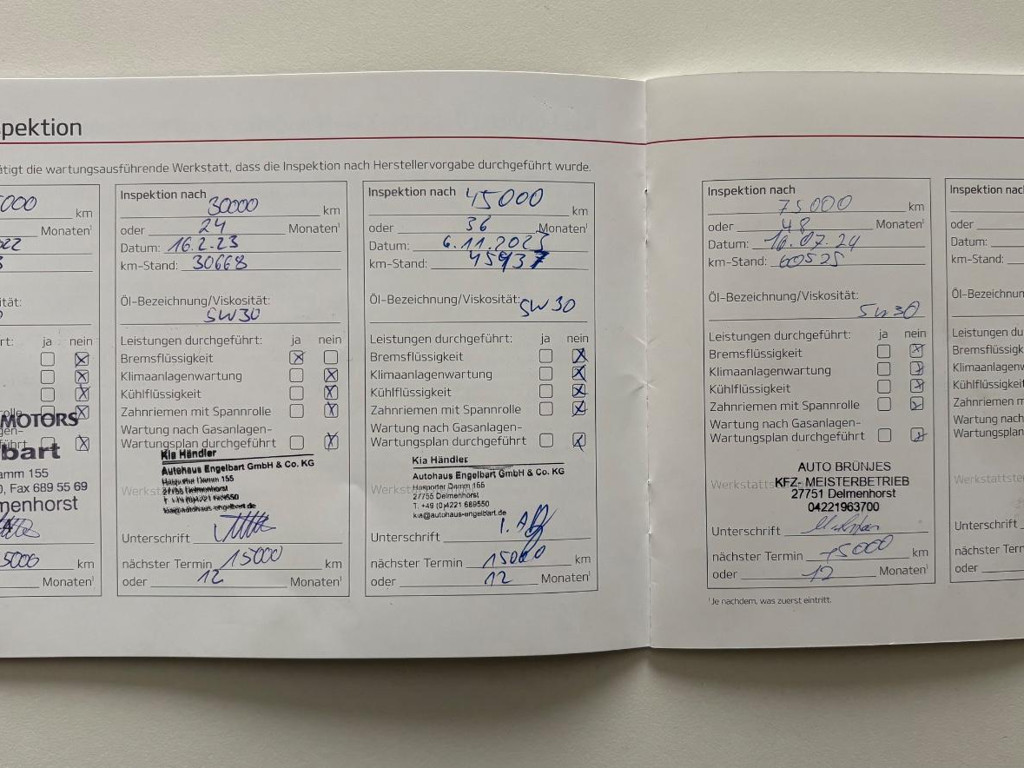 pektion
ätigt die wartungsausführende Werkstatt, dass die Inspektion nach Herstellervorgabe durchgeführt wurde.
000
km
Monaten¹
022
ität:
rt: ja nein
MOTORS
lbart
amm 155
0, Fax 689 55 69
menhorst
5000 km
Monaten¹
Inspektion nach
30000 km
oder 24 Monaten¹
Datum: 16.2.23
km-Stand: 30668
Öl-Bezeichnung/Viskosität:
5W30
Leistungen durchgeführt: ja nein
Bremsflüssigkeit
Klimaanlagenwartung
Kühlflüssigkeit
Zahnriemen mit Spannrolle
Wartung nach Gasanlagen-
Wartungsplan durchgeführt
Kia Händler
Autohaus Engelbart GmbH & Co. KG
Hasporter Damm 155
27755 Delmenhorst
T. +49 (0)4221 689550
kia@autohaus-engelbart.de
Unterschrift
nächster Termin 15000 km
oder 12 Monaten¹
Inspektion nach 45000
km
oder 36 Monaten¹
Datum: 6.11.2023
km-Stand: 45937
Öl-Bezeichnung/Viskosität:
5W30
Leistungen durchgeführt: ja nein
Bremsflüssigkeit
Klimaanlagenwartung
Kühlflüssigkeit
Zahnriemen mit Spannrolle
Wartung nach Gasanlagen-
Wartungsplan durchgeführt
Kia Händler
Autohaus Engelbart GmbH & Co. KG
Hasporter Damm 155
27755 Delmenhorst
T. +49 (0)4221 689550
kia@autohaus-engelbart.de
Unterschrift
nächster Termin 15000 km
oder 12 Monaten¹
Inspektion nach
75000 km
oder 48 Monaten¹
Datum: 16.07.24
km-Stand: 60525
Öl-Bezeichnung/Viskosität:
5W30
Leistungen durchgeführt: ja nein
Bremsflüssigkeit
Klimaanlagenwartung
Kühlflüssigkeit
Zahnriemen mit Spannrolle
Wartung nach Gasanlagen-
Wartungsplan durchgeführt
AUTO BRÜNJES
KFZ- MEISTERBETRIEB
27751 Delmenhorst
04221963700
Unterschrift
nächster Termin 75000 km
oder 12 Monaten¹
¹Je nachdem, was zuerst eintritt.
Inspektion nach
oder
Datum:
km-Stand:
Öl-Bezeichnung
Leistungen du
Bremsflüssigke
Klimaanlagenw
Kühlflüssigkeit
Zahnriemen mi
Wartung nach
Wartungsplan d
Werkstattste
Unterschrift
nächster Termi
oder